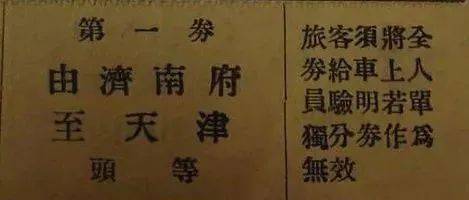 第一券
由濟南府
至天津
頭等
旅客須將全
券給車上人
員驗明若單
獨分券作爲
無效